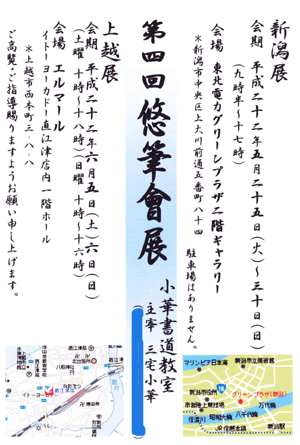 新潟展
会期 平成二十二年五月二十五日(火)〜三十日(日)
(九時半〜十七時)
会場 東北電力グリーンプラザ二階ギャラリー
＊新潟市中央区上大川前通五番町八十四
駐車場はありません。
第四回 悠筆會展
小華書道教室
主宰 三宅小華
上越展
会期 平成二十二年六月五日(土)六日(日)
(土曜 十時〜十八時)(日曜 十時〜十六時)
会場 エルマール
イトーヨーカドー直江津店内一階ホール
＊上越市西本町三-八-八
ご高覧・ご指導賜りますようお願い申し上げます。
マリンピア日本海
新潟市美術館
新潟市役所
グリーンプラザ(新潟)
市営陸上競技場
万代橋
信濃川
昭和大橋
八千代橋
JR 信越本線
新潟駅